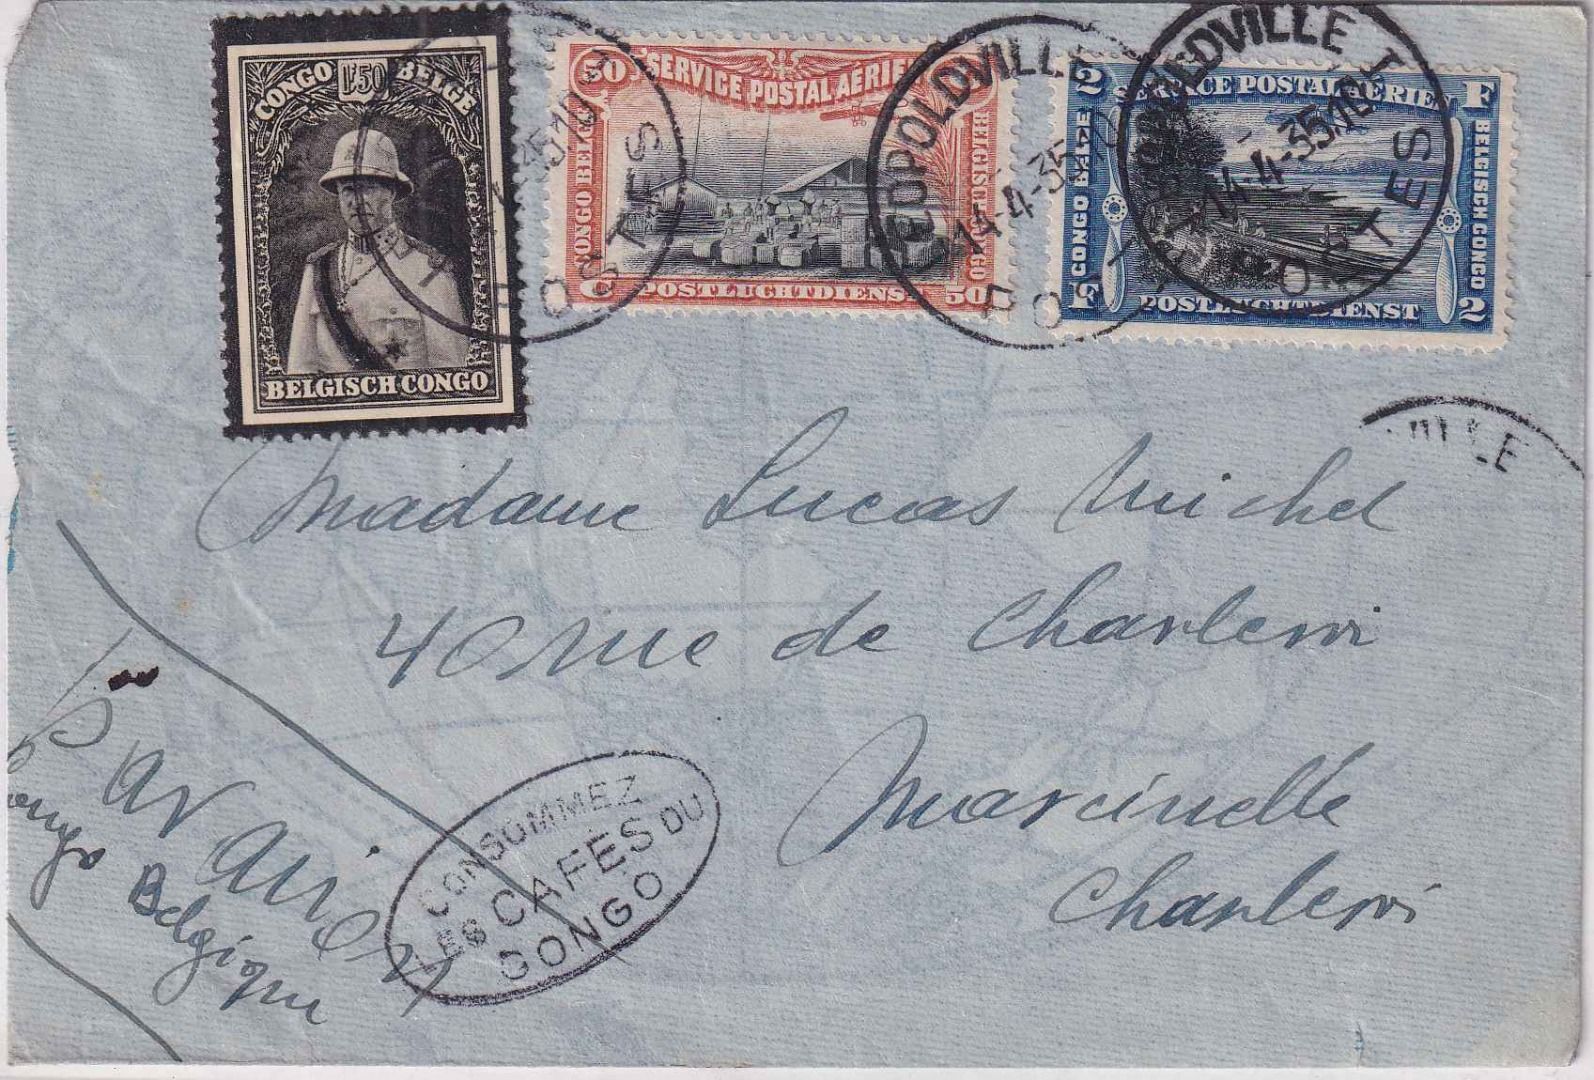 CONGO 1F50 BELGE
BELGISCH CONGO
50 SERVICE POSTAL AÉRIEN
CONGO BELGE
BELGISCH CONGO
C POSTLUCHTDIENST 50
2 SERVICE POSTAL AÉRIEN F
CONGO BELGE
BELGISCH CONGO
F POSTLUCHTDIENST 2
35.10
POSTES
LEOPOLDVILLE
14-4-35.10
LEOPOLDVILLE 1
14-4-35.10
POSTES
VILLE
Madame Lucas Michel
40 rue de Charleroi
Marcinelle
Charleroi
Par avion
Congo
Belgique
CONSOMMEZ
LES CAFES DU
CONGO